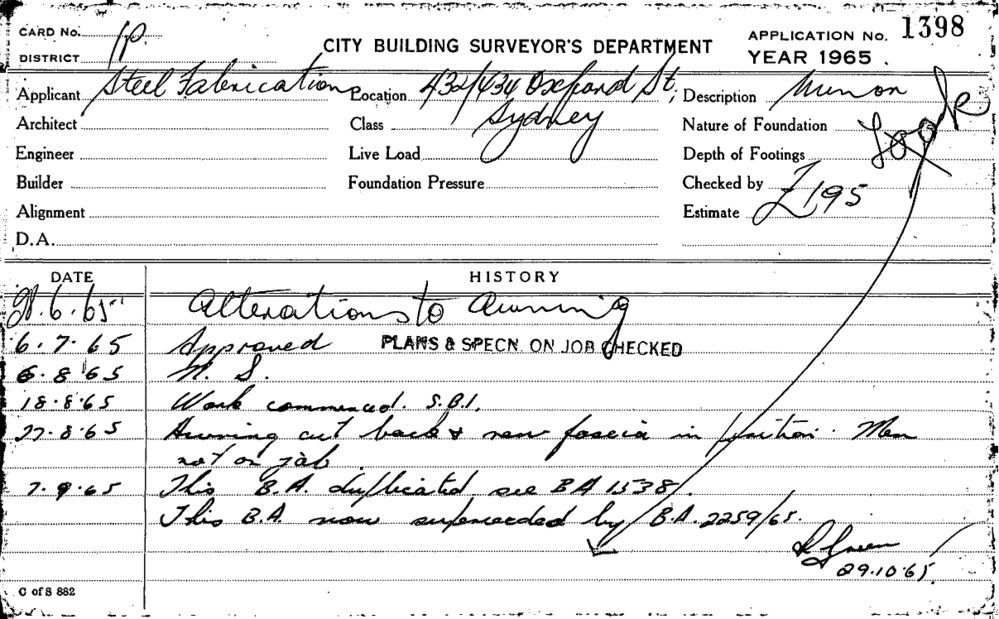 CARD No.
DISTRICT
CITY BUILDING SURVEYOR'S DEPARTMENT
APPLICATION No. 1398
YEAR 1965.
Applicant Steel Fabrications
Location 432/434 Oxford St, Sydney
Description
Architect
Class
Nature of Foundation
Engineer
Live Load
Depth of Footings
Builder
Foundation Pressure
Checked by
Alignment
Estimate £195
D.A.
DATE HISTORY
6.65 Alterations to Awning
6.7.65 Approved PLANS & SPECN. ON JOB CHECKED
6.8.65 N. S.
18.8.65 Work commenced. S.B.I.
27.8.65 Awning cut back & new fascia in position. Men
not on job.
7.9.65 This B.A. duplicated see BA 1538/.
This B.A. now superceeded by B.A. 2259/65.
Green
29.10.65.
C of S 882